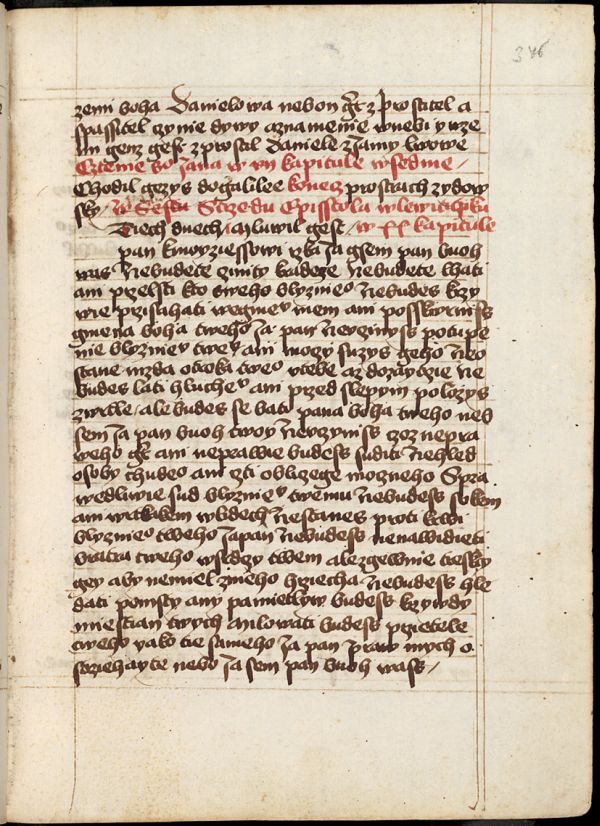 346
zemi boha Danielowa nebon gt z prostitel a
spassitel czynie dywy aznamenie wnebi y wze
mi genz gest z prostil Daniele z Jamy lwowe
Cztenie so Jana w vii kapitule w sedmie
Chodil gezys do galilee konecz prostrach zydow
sky w Sestu Strzedu Episstola w lewitiku
Tiech dnech mluwil gest w xx kapitule
pan k moyziessowi rzka Ja gsem pan buoh
was Nebudete czinity kradeze Nebudete lhati
ani przelsti kto sweho blyznieo Nebudes krzy
wie przisahati we gmee mem ani posskwrniss
gmena boha tweho Ja pan Neuczinyss potupe
nie blyznieo tweo ani moczy suzys geho Neo
stane mzda otroka tweo v tebe az do zaytrzie Ne
budes lati hlucheo ani przed slepym polozys
zwrtle ale budes se bati pana boha tweho neb
sem Ja pan buoh twoy Neuczyniss czoz nepra
weho gt ani neprawie budess suditi Nehled
osoby chudeo ani czti obliczege mozneho Spra
wedliwie sud blyznieo twemu Nebudess sokem
ani w lidech Nestanes proti krwi
blyznieo tweho Ja pan Nebudess nenawidieti
bratra tweho w srdczy twem ale zgewnie tresky
gey aby nemiel z nieho hrziecha Nebudess hle
dati pomsty any pamietlyw budess krzywdy
miestian twych Milowati budess przietele
tweho yako tie sameho Ja pan praw mych o
strziehayte nebo Ja sem pan buoh wass